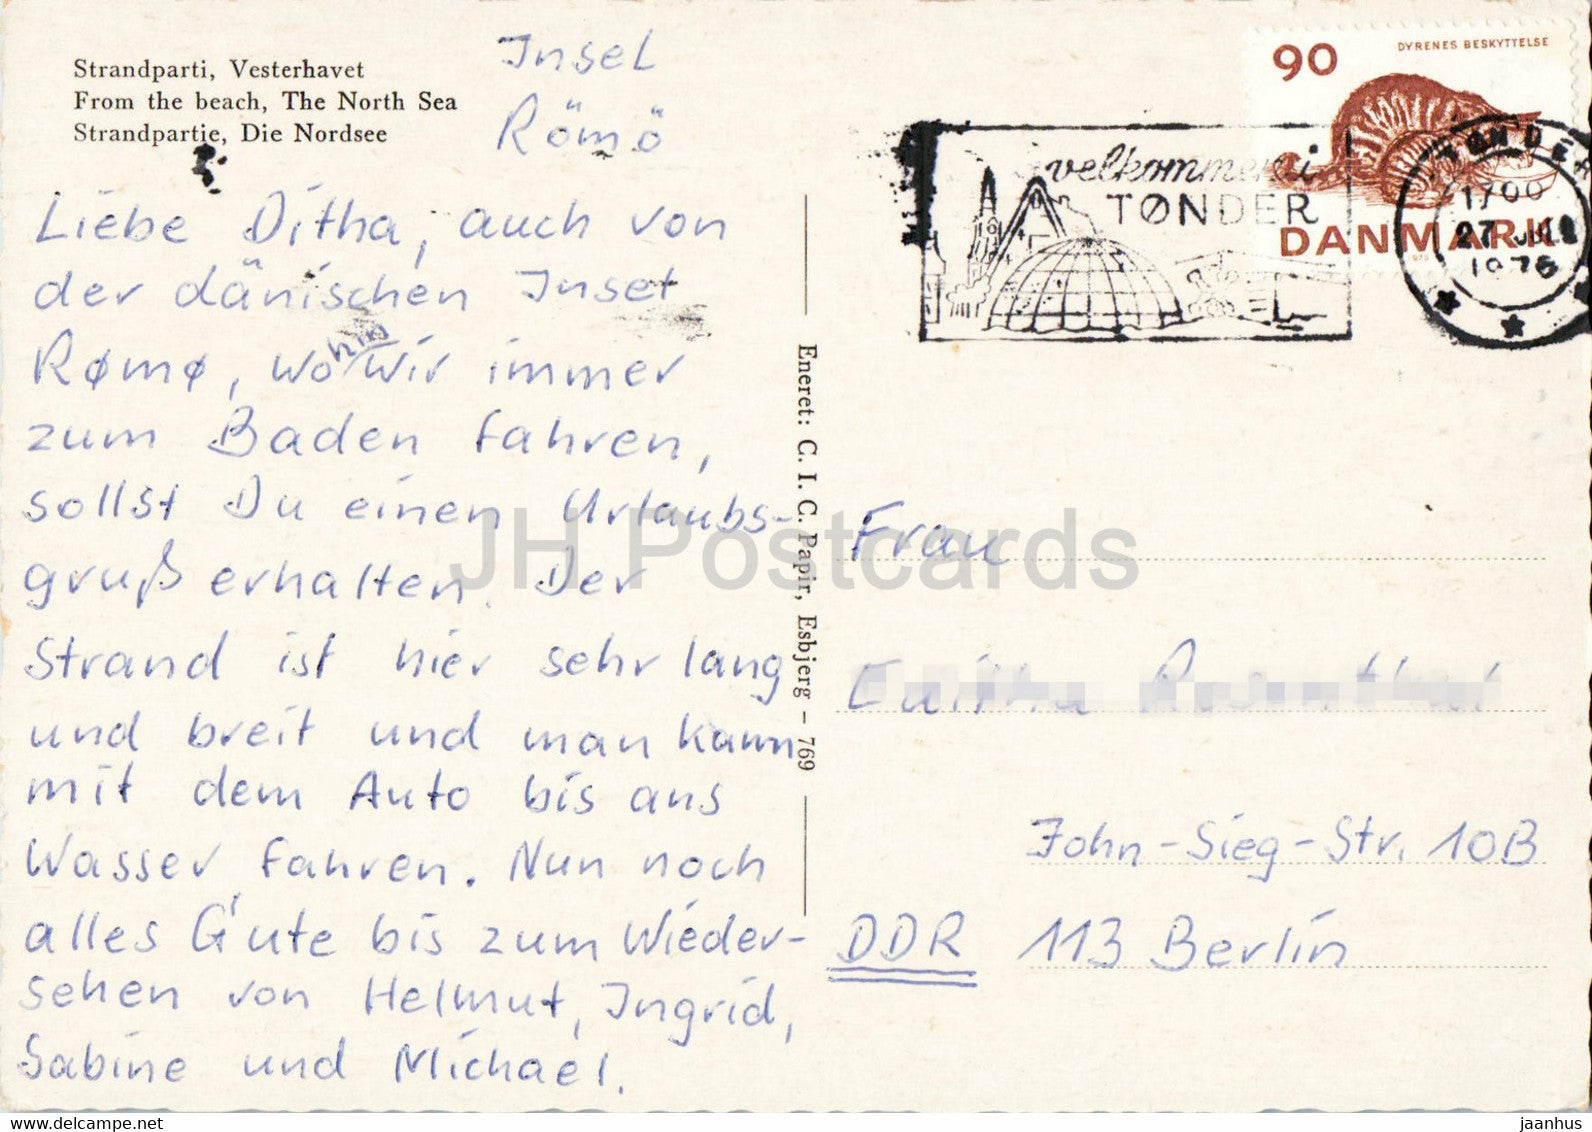 Strandparti, Vesterhavet
From the beach, The North Sea
Strandpartie, Die Nordsee
Insel
Römö
Liebe Ditha, auch von
der dänischen Insel
Rømø, wohin wir immer
zum Baden fahren,
sollst Du einen Urlaubs-
gruß erhalten. Der
Strand ist hier sehr lang
und breit und man kann
mit dem Auto bis ans
Wasser fahren. Nun noch
alles Gute bis zum Wieder-
sehen von Helmut, Ingrid,
Sabine und Michael.
Eneret: C. I. C. Papir, Esbjerg - 769
90
DYRENES BESKYTTELSE
DANMARK
velkommen i
TØNDER
TØNDER
1700
27 JUL
1976
Frau
John-Sieg-Str. 10B
DDR 113 Berlin
JH Postcards
jaanhus